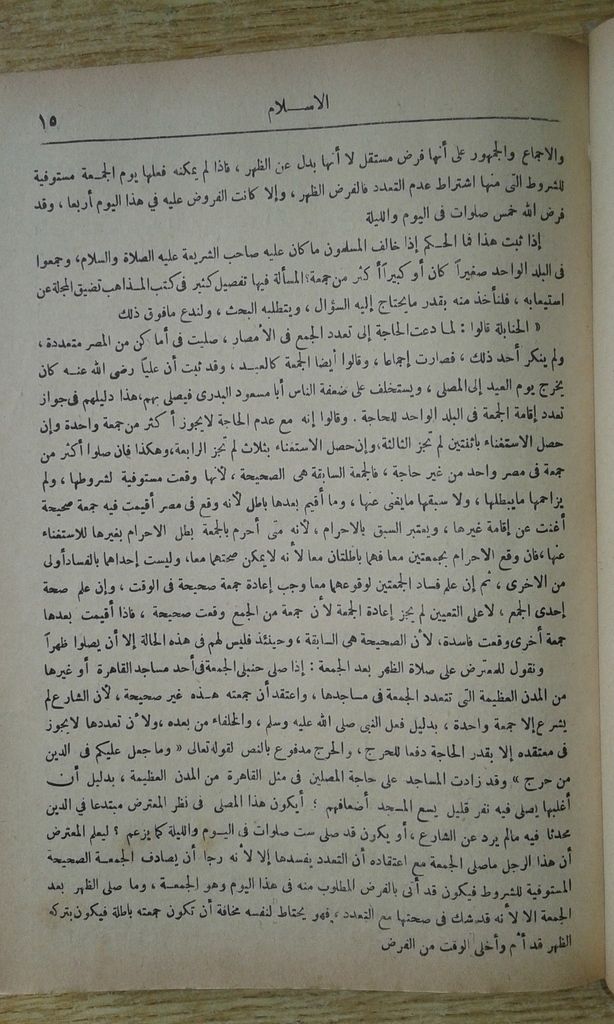 الاسلام
١٥
والاجماع والجمهور على أنها فرض مستقل لا أنها بدل عن الظهر ، فاذا لم يمكنه فعلها يوم الجمعة مستوفية
للشروط التى منها اشتراط عدم التعدد فالفرض الظهر ، وإلا كانت الفروض عليه في هذا اليوم أربعا ، وقد
فرض الله خمس صلوات فى اليوم والليلة
إذا ثبت هذا فما الحكم إذا خالف المسلمون ما كان عليه صاحب الشريعة عليه الصلاة والسلام، وجمعوا
فى البلد الواحد صغيراً كان أو كبيراً أكثر من جمعة؟ المسألة فيها تفصيل كثير فى كتب المذاهب تضيق المجلة عن
استيعابه ، فلنأخذ منه بقدر ما يحتاج إليه السؤال ، ويتطلبه البحث ، ولندع مافوق ذلك
« الحنابلة قالوا : لما دعت الحاجة إلى تعدد الجمع فى الأمصار ، صليت فى أماكن من المصر متعددة ،
ولم ينكر أحد ذلك ، فصارت إجماعا ، وقالوا أيضا الجمعة كالعيد ، وقد ثبت أن علياً رضى الله عنه كان
يخرج يوم العيد إلى المصلى ، ويستخلف على ضعفة الناس أبا مسعود البدرى فيصلى بهم، هذا دليلهم فى جواز
تعدد إقامة الجمعة فى البلد الواحد للحاجة . وقالوا إنه مع عدم الحاجة لايجوز أكثر من جمعة واحدة وإن
حصل الاستغناء باثنتين لم تجز الثالثة، وإن حصل الاستغناء بثلاث لم تجز الرابعة، وهكذا فان صلوا أكثر من
جمعة فى مصر واحد من غير حاجة ، فالجمعة السابقة هى الصحيحة ، لأنها وقعت مستوفية لشروطها ، ولم
يزاحمها مايبطلها ، ولا سبقها مايغنى عنها ، وما أقيم بعدها باطل لأنه وقع فى مصر أقيمت فيه جمعة صحيحة
أغنت عن إقامة غيرها ، ويعتبر السبق بالاحرام ، لأنه متى أحرم بالجمعة بطل الاحرام بغيرها للاستغناء
عنها، فان وقع الاحرام بجمعتين معا فهما باطلتان معا لأنه لايمكن صحتهما معا، وليست إحداهما بالفساد أولى
من الاخرى ، ثم إن علم فساد الجمعتين لوقوعهما معا وجب إعادة جمعة صحيحة فى الوقت ، وإن علم صحة
إحدى الجمع ، لا على التعيين لم يجز إعادة الجمعة لأن جمعة من الجمع وقعت صحيحة ، فاذا أقيمت بعدها
جمعة أخرى وقعت فاسدة، لأن الصحيحة هى السابقة ، وحينئذ فليس لهم فى هذه الحالة إلا أن يصلوا ظهراً
ونقول للمعترض على صلاة الظهر بعد الجمعة : إذا صلى حنبلى الجمعة فى أحد مساجد القاهرة أو غيرها
من المدن العظيمة التى تتعدد الجمعة فى مساجدها ، واعتقد أن جمعته هذه غير صحيحة ، لأن الشارع لم
يشرع إلا جمعة واحدة ، بدليل فعل النبى صلى الله عليه وسلم ، والخلفاء من بعده ، ولأن تعددها لايجوز
فى معتقده إلا بقدر الحاجة دفعا للحرج ، والحرج مدفوع بالنص لقوله تعالى « وما جعل عليكم فى الدين
من حرج » وقد زادت المساجد على حاجة المصلين فى مثل القاهرة من المدن العظيمة ، بدليل أن
أغلبها يصلى فيه نفر قليل يسع المسجد أضعافهم ؛ أيكون هذا المصلى فى نظر المعترض مبتدعا في الدين
محدثا فيه مالم يرد عن الشارع ، أو يكون قد صلى ست صلوات فى اليوم والليلة كما يزعم ؟ ليعلم المعترض
أن هذا الرجل ماصلى الجمعة مع اعتقاده أن التعدد يفسدها إلا لأنه رجا أن يصادف الجمعة الصحيحة
المستوفية للشروط فيكون قد أتى بالفرض المطلوب منه فى هذا اليوم وهو الجمعة ، وما صلى الظهر بعد
الجمعة الا لأنه قد شك فى صحتها مع التعدد ، فهو يحتاط لنفسه مخافة أن تكون جمعته باطلة فيكون بتركه
الظهر قد أثم وأخلى الوقت من الفرض